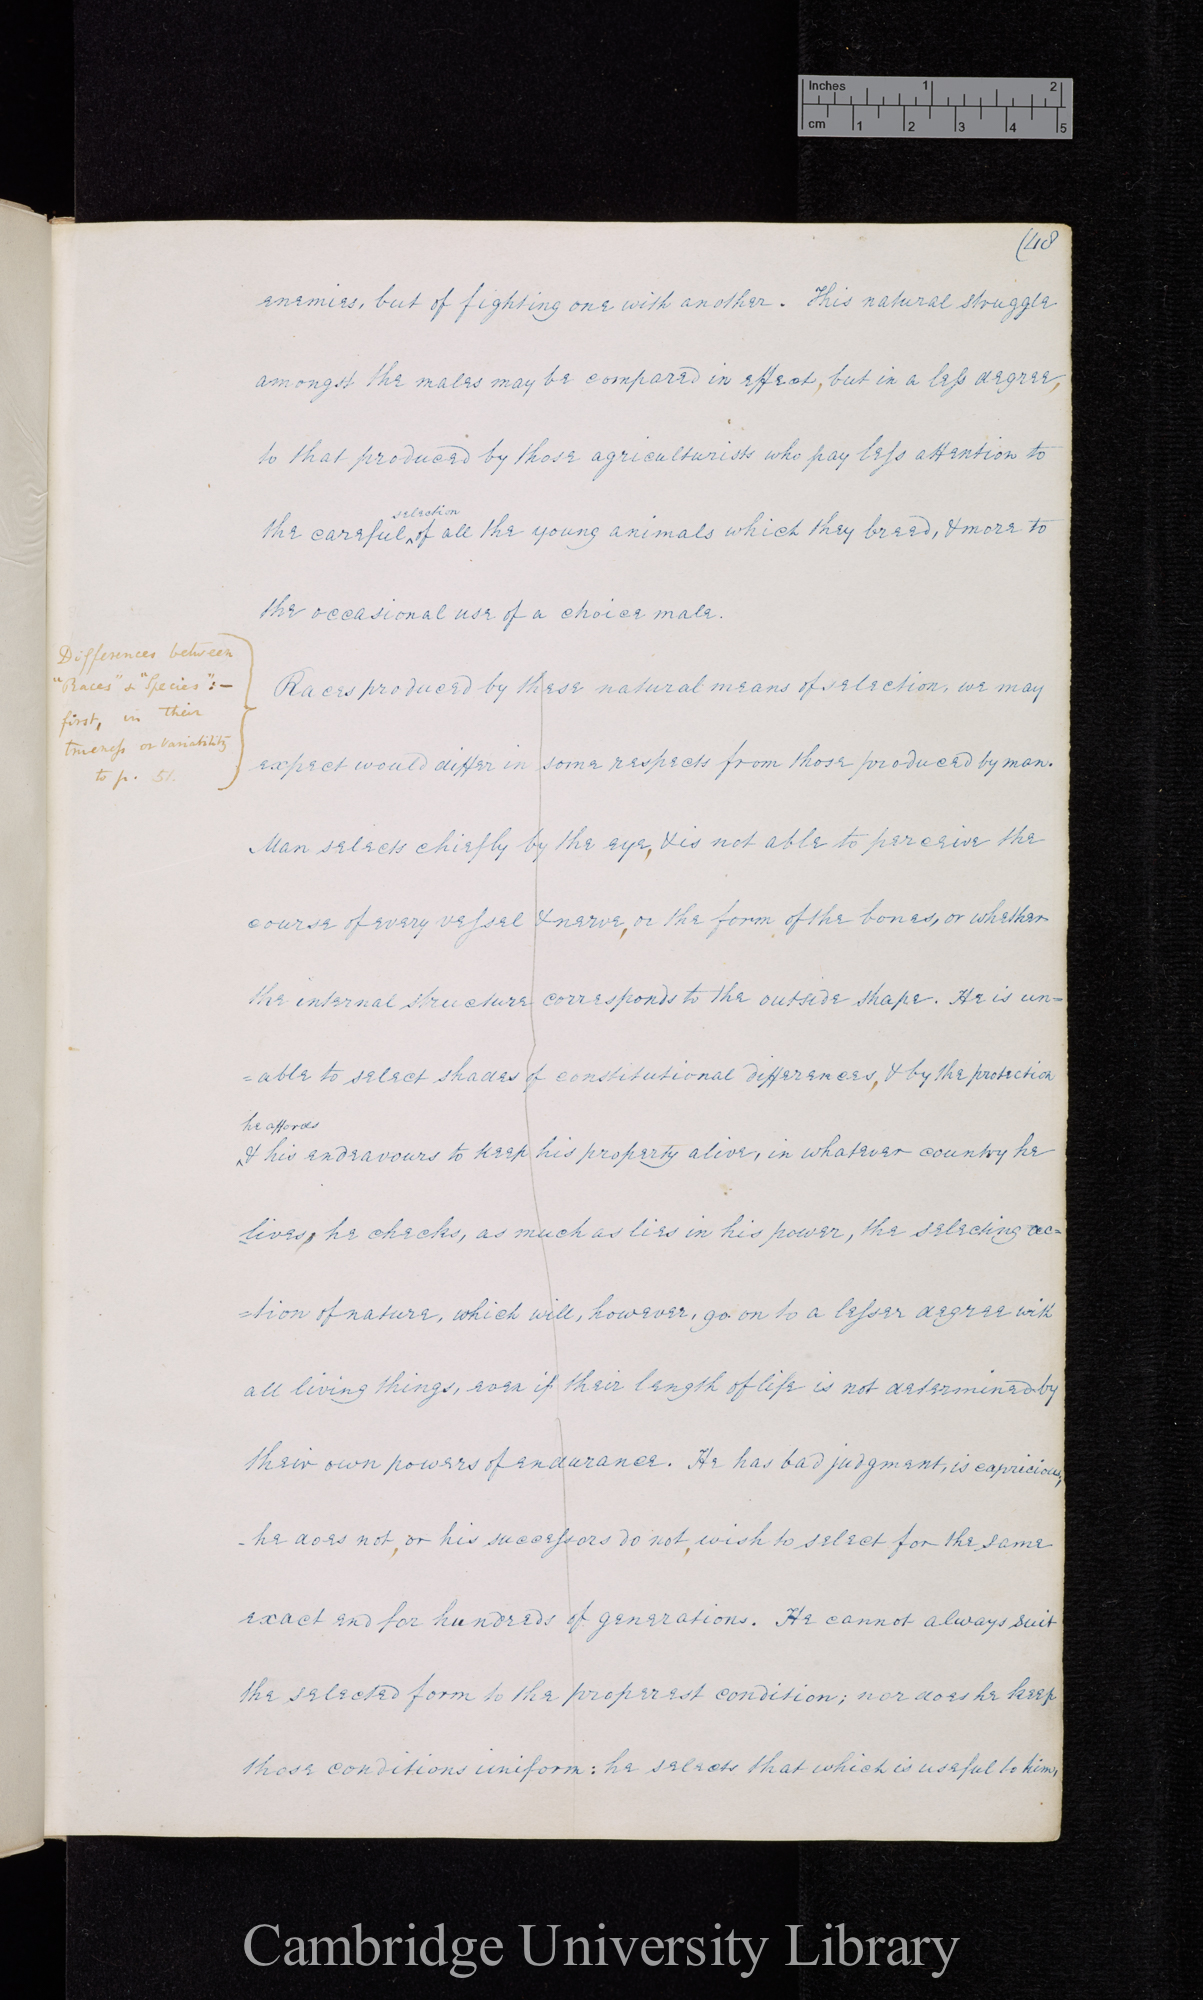 Inches 1 2
cm 1 2 3 4 5
(48
enemies, but of fighting one with another. This natural struggle
amongst the males may be compared in effect, but in a leſs degree,
to that produced by those agriculturists who pay leſs attention to
selection
the careful ‸ of all the young animals which they breed, & more to
the occasional use of a choice male.
Differences between
"Races" & "Species":—
first, in their
trueneſs or variability
to p. 51.
Races produced by these natural means of selection, we may
expect would differ in some respects from those produced by man.
Man selects chiefly by the eye, & is not able to perceive the
course of every veſsel & nerve, or the form of the bones, or whether
the internal structure corresponds to the outside shape. He is un=
=able to select shades of constitutional differences, & by the protection
he affords
‸ & his endeavours to keep his property alive, in whatever country he
lives, he checks, as much as lies in his power, the selecting ac=
=tion of nature, which will, however, go on to a leſser degree with
all living things, even if their length of life is not determined by
their own powers of endurance. He has bad judgment, is capricious,
- he does not, or his succeſsors do not, wish to select for the same
exact end for hundreds of generations. He cannot always suit
the selected form to the properest condition; nor does he keep
those conditions uniform: he selects that which is useful to him,
Cambridge University Library